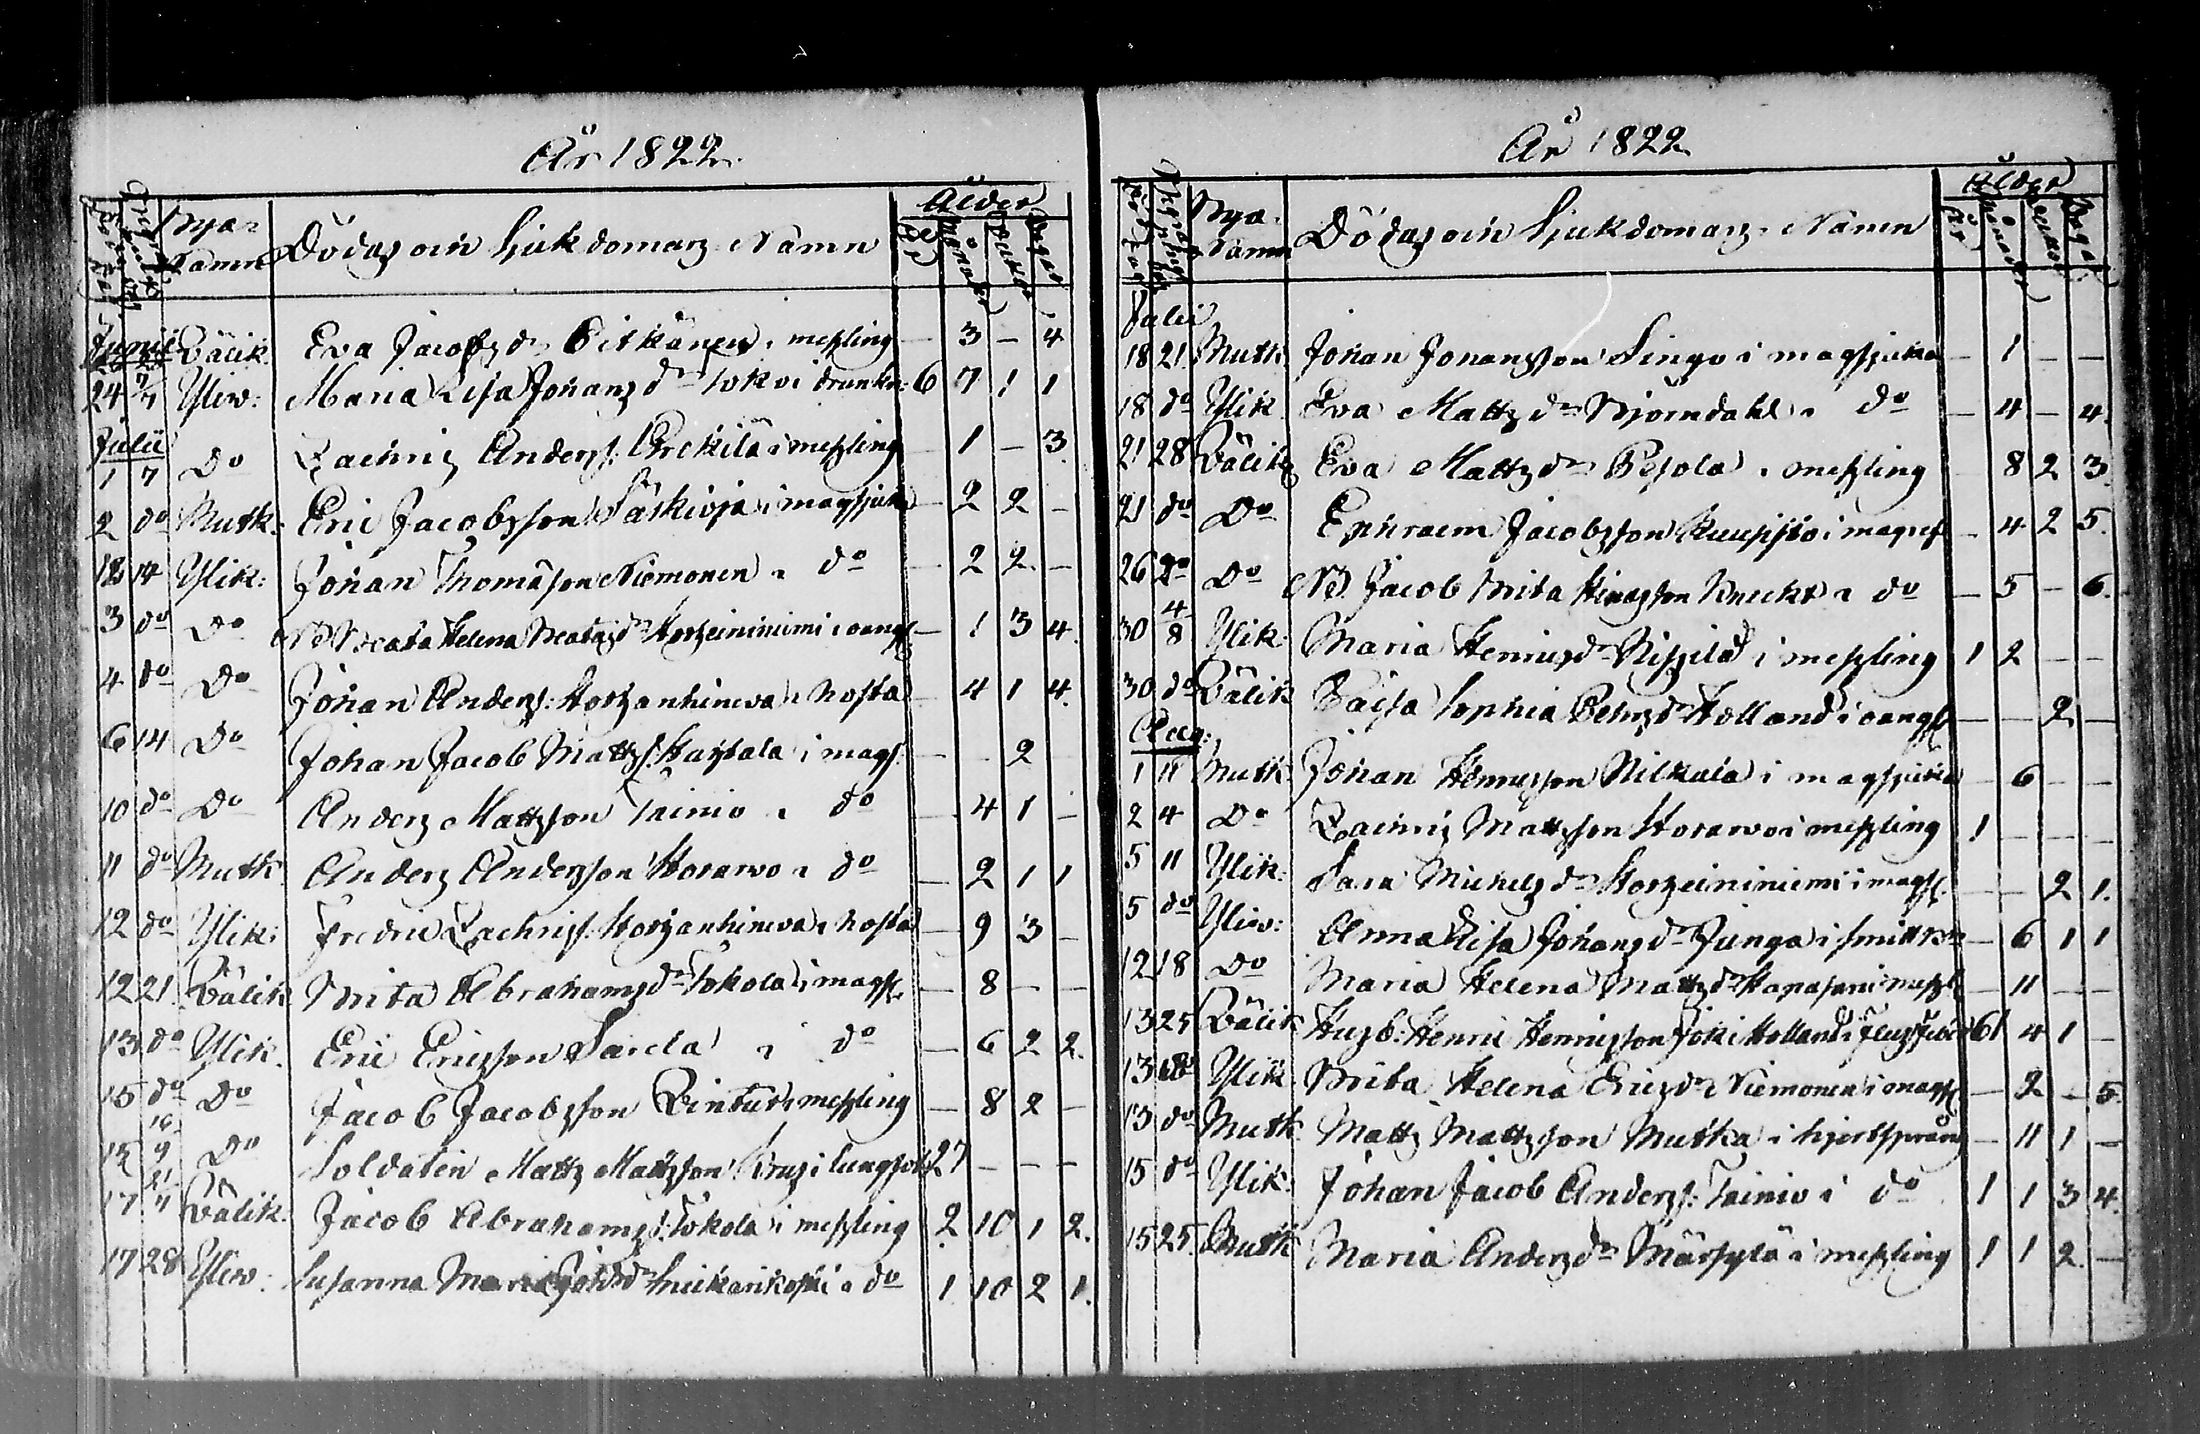 År 1822.
Bya-Namn Dödas och Sjukdomars Namn Ålder År Månader Veckor Dagar
Junii Wälik. Eva Jacobsdr Pitkänen, messling — 3 — 4
24 7/7 Yliw: Maria Lisa Johansdr Tokoi drunkn: 6 7 1 1
Julii
1 7 Do Zachris Anders. Erckilä i messling — 1 — 3.
2 do Mutk: Eric Jacobsson Särkioja i magsjuka — 2 2 —
12 14 Ylik: Johan Thomasson Niemonen i do — 2 2 —
3 do Do Beata Helena Beatasdr Korkeiniemi i oangf — 1 3 4.
4 do Do Johan Anders: Korhanhineva i hosta — 4 1 4.
6 14 Do Johan Jacob Matts. i mags. — - 2
10 do Do Anders Mattsson Tainio i do — 4 1 —
11 do Mutk. Anders Andersson Korarvo i do — 2 1 1
12 do Ylik: Fredric Zachris. Korhanhineva i hosta — 9 3 —
12 21 Wälik Brita Abrahamsdr Tokola i magsj. — 8 — —
13 do Ylik. Eric Ericsson Sarela i do — 6 2 2.
15 do Do Jacob Jacobsson Vintur i messling — 8 2 —
15 16/9 Do Soldaten Matts Mattsson Krus i lungsot 27 — — —
17 21/11 Wälik. Jacob Abrahams: Tokola i messling 2 10 1 2.
17 28 Yliw: Susanna Maria i do 1 10 2 1.
År 1822
Bya-Namn Dödas och Sjukdomars Namn Ålder År Månader Veckor Dagar
Julii
18 21 Mutk. Johan Johansson Lingo i magsjuka — 1 — —
18 do Ylik Eva Mattsdr Björndahl i do — 4 — 4.
21 28 Wälik Eva Mattsdr Pesola i messling — 8 2 3.
21 do Do Ephraim Jacobsson Kuusisto i magref — 4 2 5.
26 do Do Jacob Brita Knecht i do — 5 — 6.
30 4/8 Ylik. Maria Henricsdr Nissilä i messling 1 2 — —
30 do Wälik Caisa Sophia Pehrsdr Holland i oangf — — 2 —
Aug:
1 11 Mutk. Johan Henricsson Nilkula i magsjuka — 6 — —
2 4 Do Zachris Mattsson Korarvo i messling 1 — — —
5 11 Ylik. Sara Michelsdr Korkeiniemi i magsj. — — 2 1.
5 do Yliw: Anna Lisa Johansdr Junga i — 6 1 1
12 18 Do Maria Helena Mattsdr Hapasari messl. — 11 — —
13 25 Wälik Husb: Henric Henricsson Joki Holland i 61 4 1 —
13 do Ylik Brita Helena Ericsdr Niemonen i magsj — 2 — 5.
13 do Mutk Matts Mattsson Mutka i hjertsprång — 11 1 —
15 do Ylik. Johan Jacob Anders: Tainio i do 1 1 3 4.
15 25 Mutk Maria Andersdr Märsylä i messling 1 1 2. —